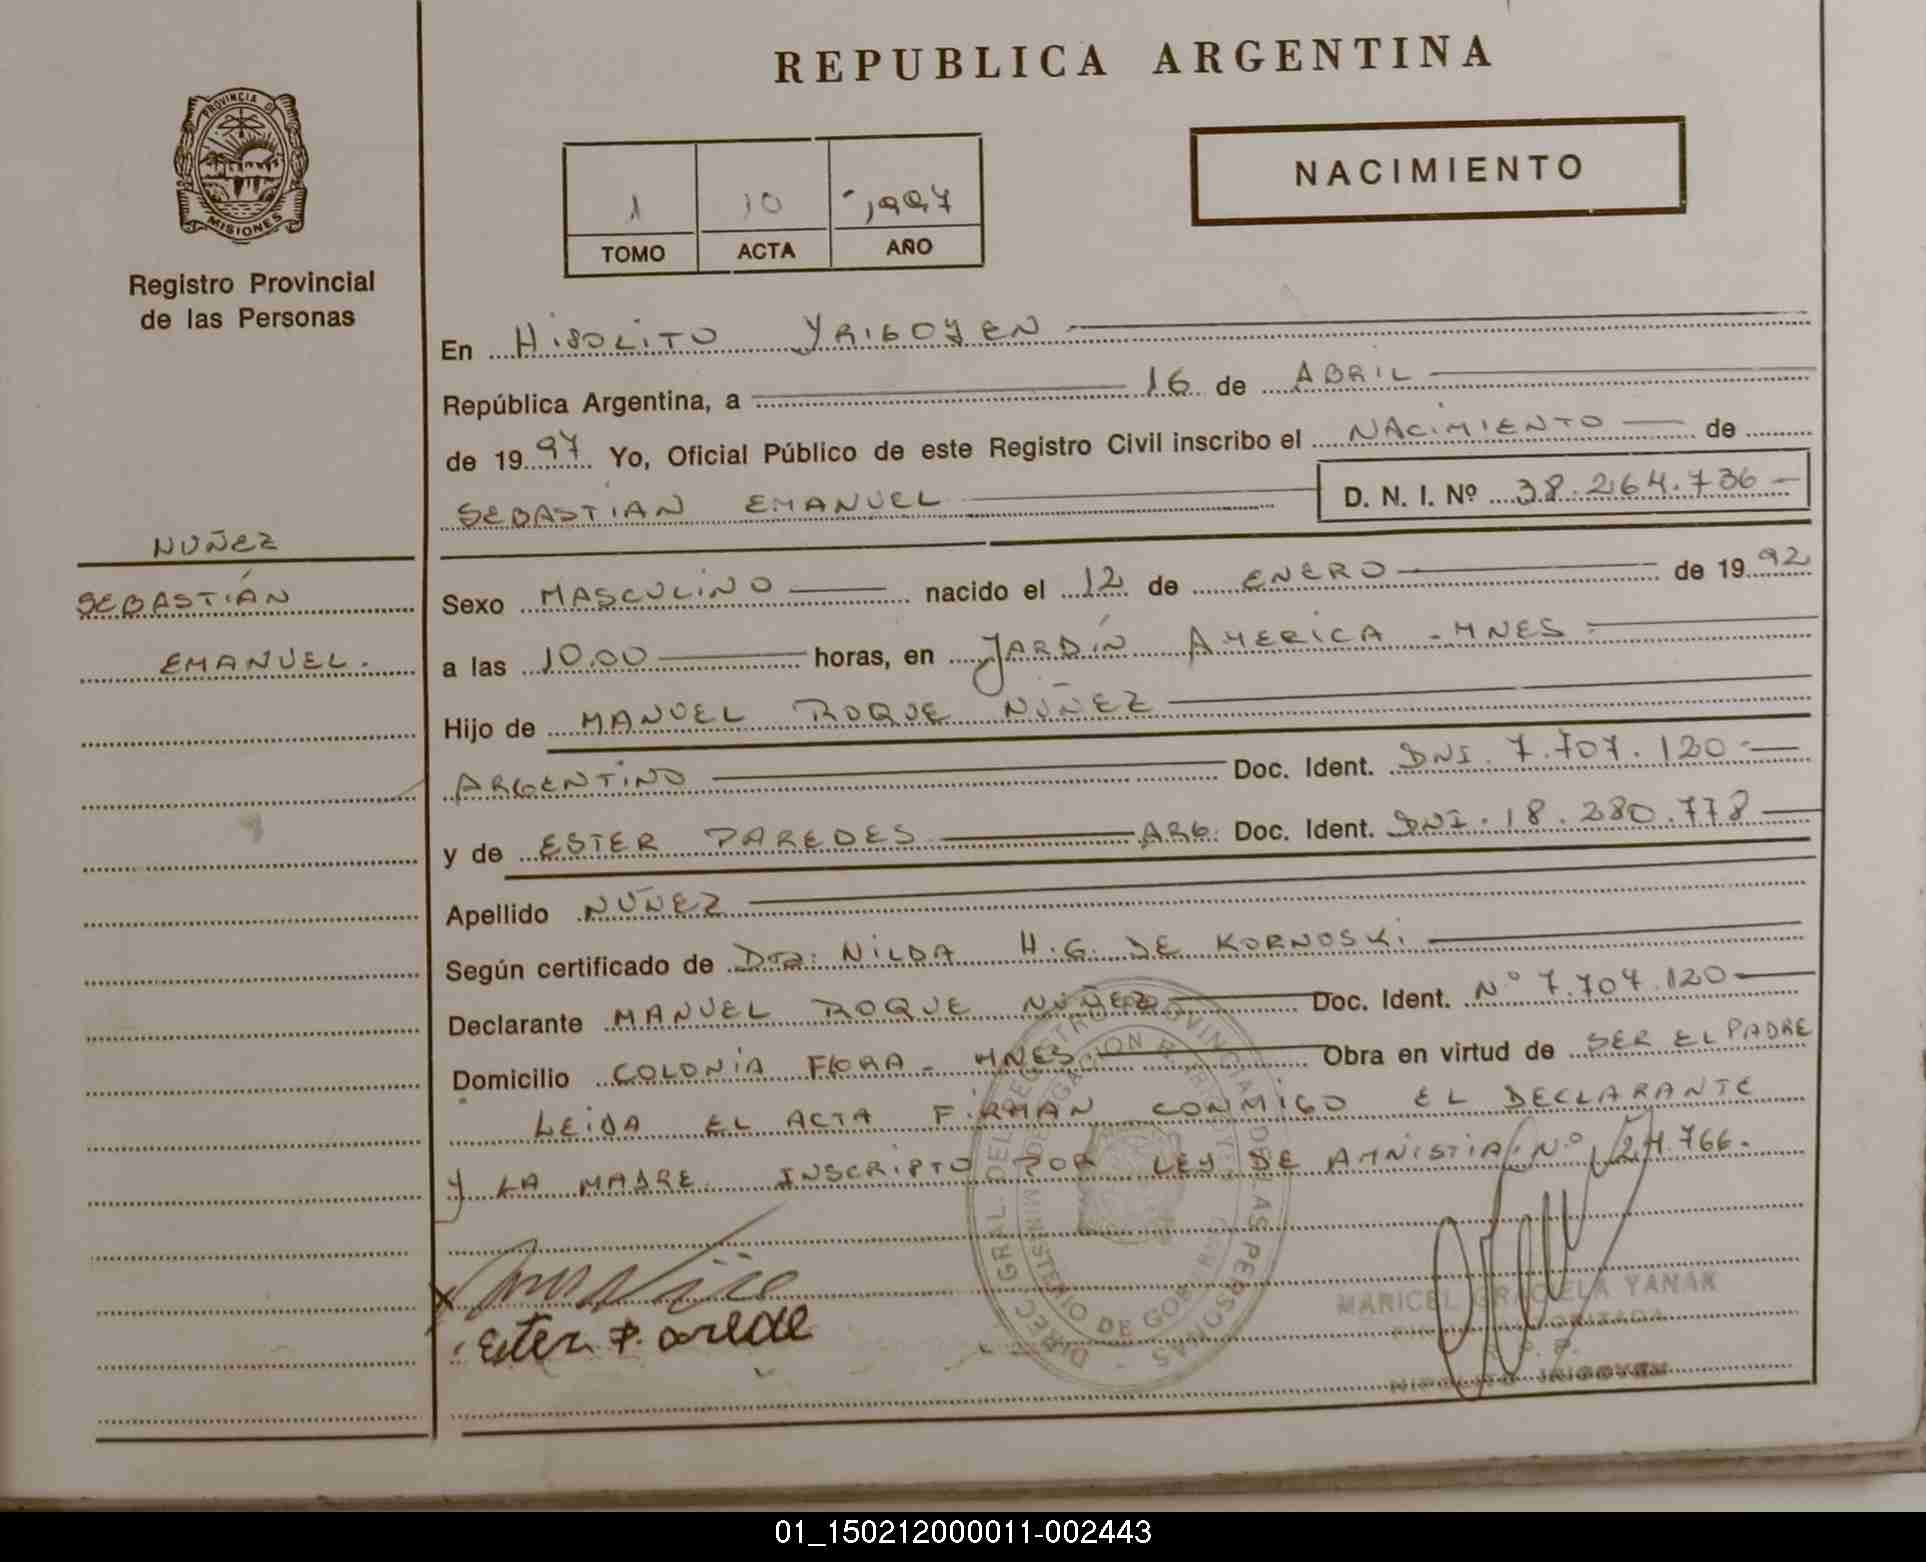 REPUBLICA ARGENTINA
PROVINCIA DE
MISIONES
Registro Provincial
de las Personas
NACIMIENTO
1 10 1997
TOMO ACTA AÑO
En HIPOLITO YRIGOYEN
República Argentina, a 16 de ABRIL
de 1997 Yo, Oficial Público de este Registro Civil inscribo el NACIMIENTO de
SEBASTIAN EMANUEL D. N. I. Nº 38.264.736
NUÑEZ
SEBASTIÁN
EMANUEL.
Sexo MASCULINO nacido el 12 de ENERO de 1992
a las 10.00 horas, en JARDÍN AMERICA - MNES
Hijo de MANUEL ROQUE NUÑEZ
ARGENTINO Doc. Ident. DNI. 7.707.120
y de ESTER PAREDES ARG. Doc. Ident. DNI. 18.280.778
Apellido NUÑEZ
Según certificado de DRA: NILDA H.G. DE KORNOSKI
Declarante MANUEL ROQUE NUÑEZ Doc. Ident. Nº 7.707.120
Domicilio COLONIA FLORA - MNES Obra en virtud de SER EL PADRE
LEIDA EL ACTA FIRMAN CONMIGO EL DECLARANTE
Y LA MADRE. INSCRIPTO POR LEY DE AMNISTIA Nº 24.766.
DIREC. GRAL. DEL REGISTRO PROVINCIAL DE LAS PERSONAS
MINISTERIO DE GOBIERNO
Ester P. arede
MARICEL GRACIELA YANAK
HIPOLITO IRIGOYEN
01_150212000011-002443